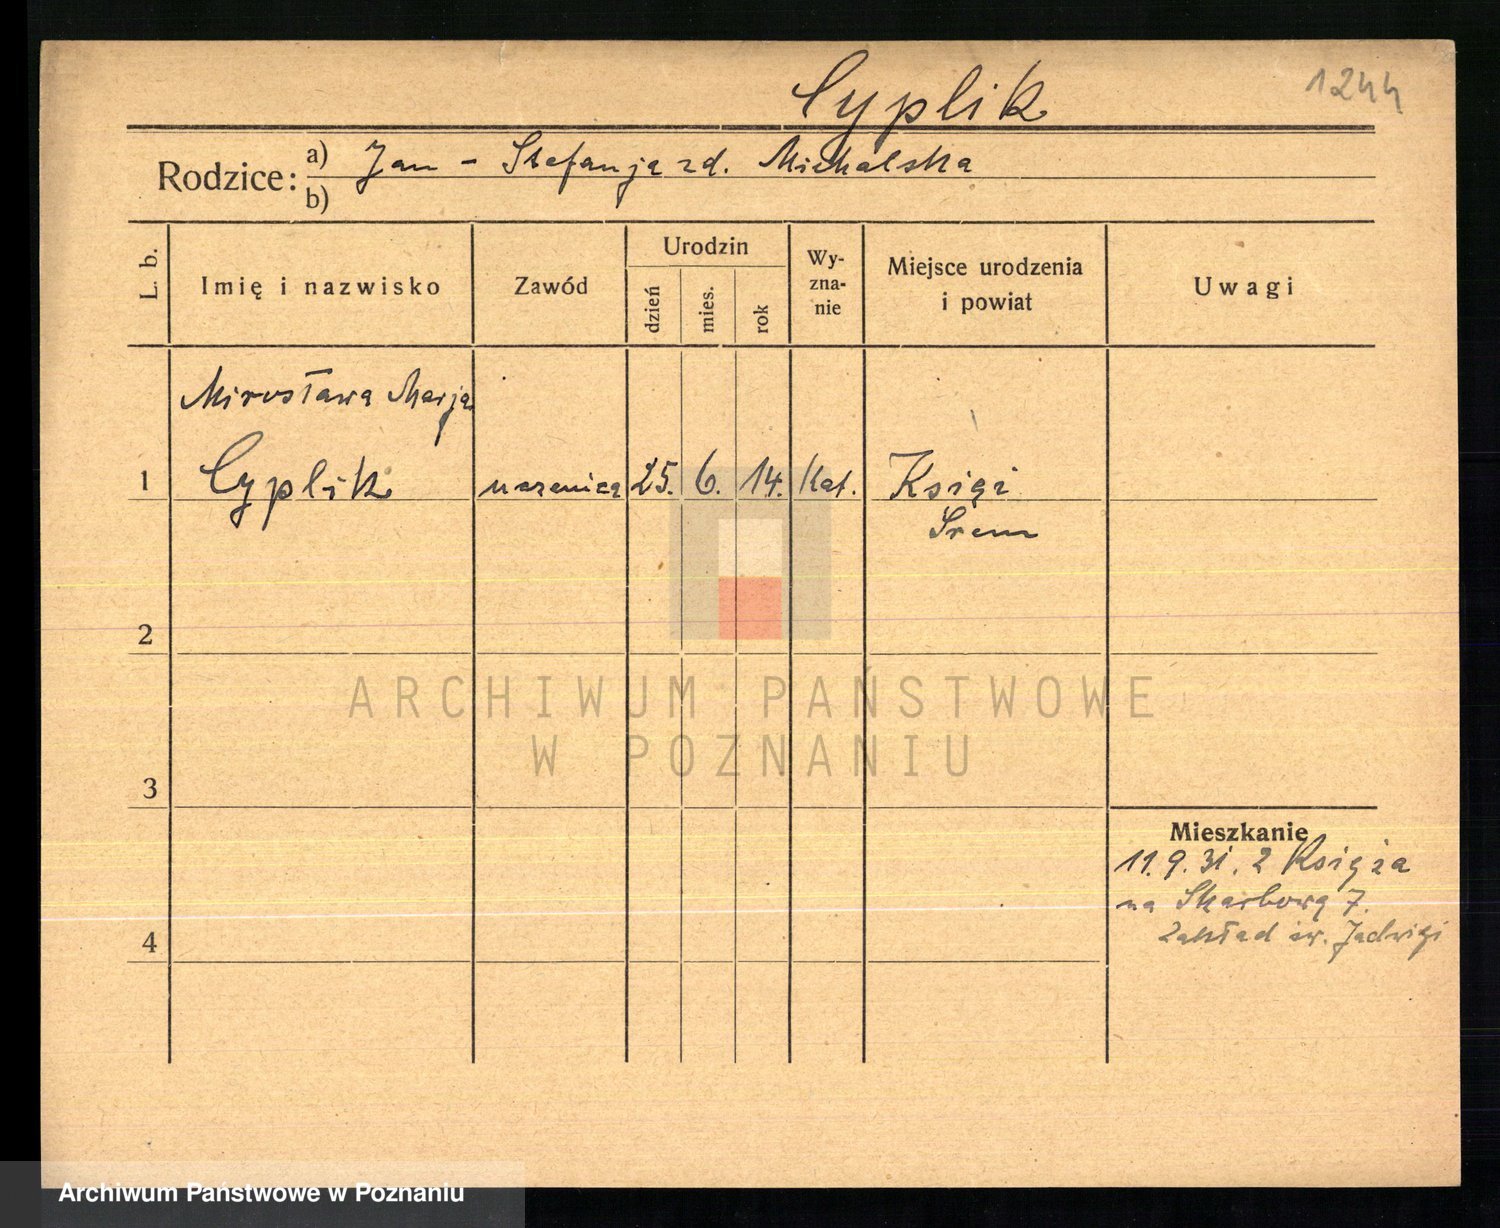 Cyplik
1244
Rodzice: a) Jan - Stefanja zd. Michalska
b)
L. b.
Imię i nazwisko
Zawód
Urodzin
dzień
mies.
rok
Wy-
zna-
nie
Miejsce urodzenia
i powiat
Uwagi
Mirosława Marja
1 Cyplik uczenica 25. 6. 14. Kat. Książ
Śrem
2
3
4
Mieszkanie
11.9.31. z Książa
na Skarbową 7.
Zakład św. Jadwigi
ARCHIWUM PAŃSTWOWE
W POZNANIU
Archiwum Państwowe w Poznaniu